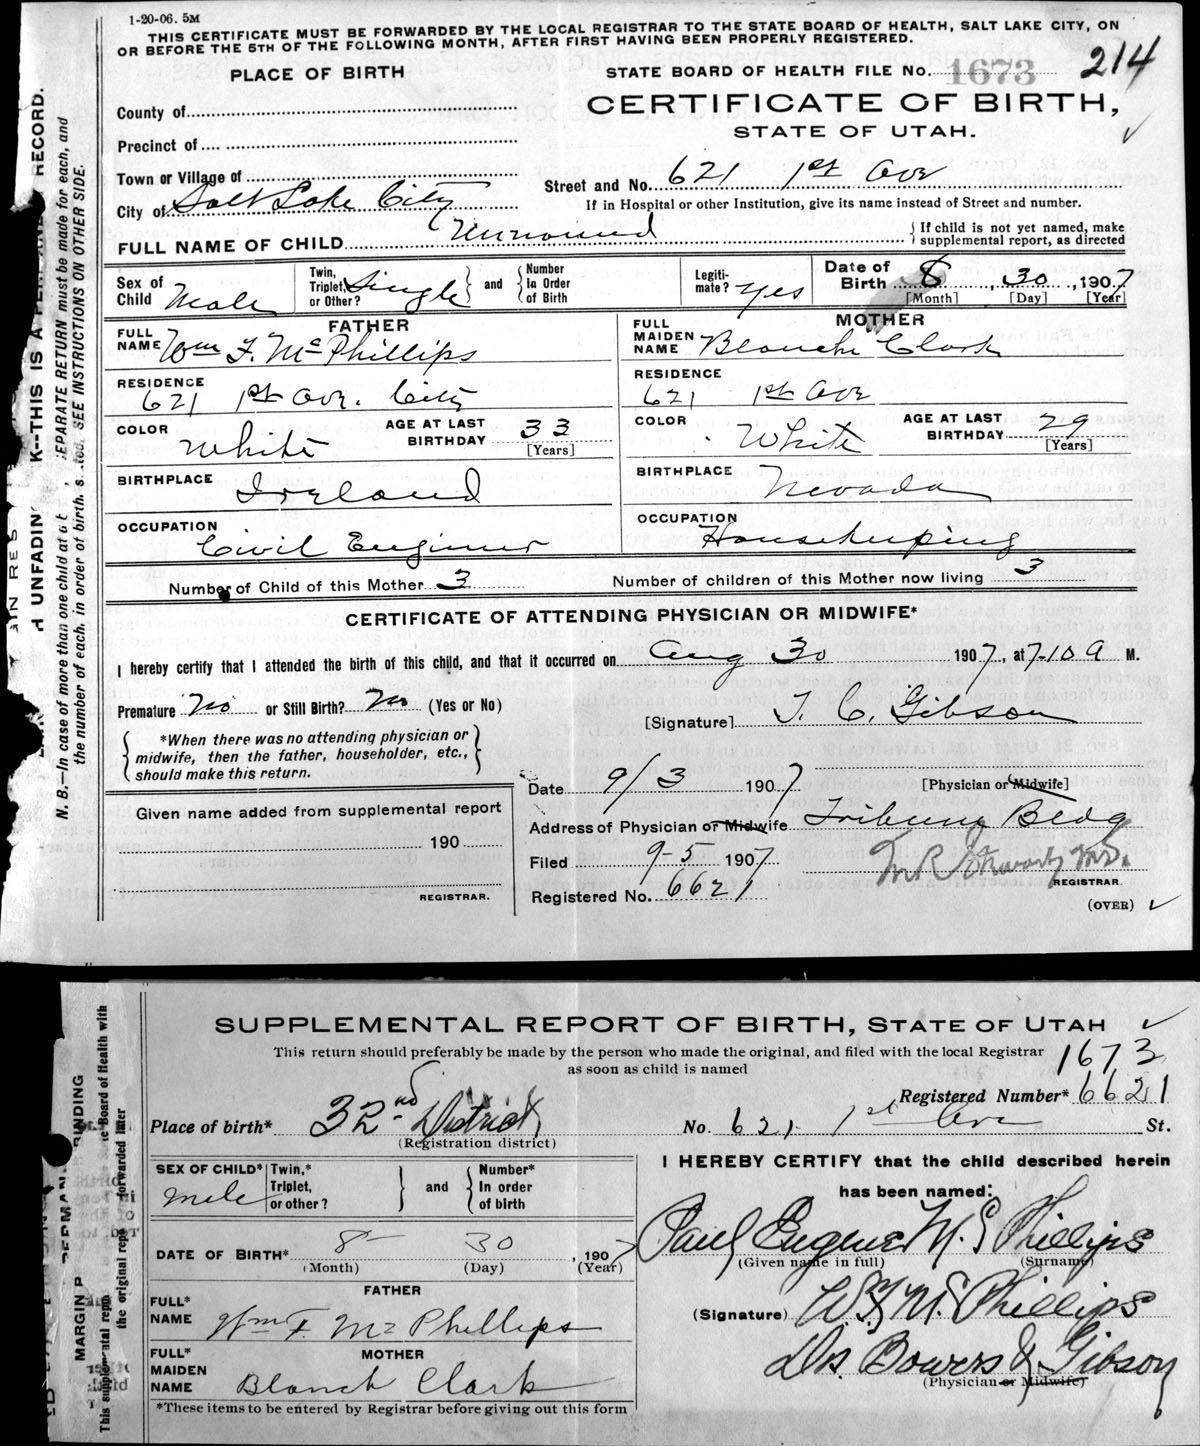 1-20-06. 5M
THIS CERTIFICATE MUST BE FORWARDED BY THE LOCAL REGISTRAR TO THE STATE BOARD OF HEALTH, SALT LAKE CITY, ON
OR BEFORE THE 5TH OF THE FOLLOWING MONTH, AFTER FIRST HAVING BEEN PROPERLY REGISTERED.
PLACE OF BIRTH
STATE BOARD OF HEALTH FILE No. 1673 214
CERTIFICATE OF BIRTH,
STATE OF UTAH.
County of
Precinct of
Town or Village of
City of Salt Lake City
Street and No. 621 1st Ave
If in Hospital or other Institution, give its name instead of Street and number.
FULL NAME OF CHILD Unnamed
If child is not yet named, make
supplemental report, as directed
Sex of Child Male
Twin, Triplet, or Other? Single and Number In Order of Birth
Legiti-mate? Yes
Date of Birth 8, 30, 1907
[Month] [Day] [Year]
FATHER
FULL NAME Wm F. McPhillips
RESIDENCE 621 1st Ave. City
COLOR White AGE AT LAST BIRTHDAY 33 [Years]
BIRTHPLACE Ireland
OCCUPATION Civil Engineer
MOTHER
FULL MAIDEN NAME Blanche Clark
RESIDENCE 621 1st Ave
COLOR White AGE AT LAST BIRTHDAY 29 [Years]
BIRTHPLACE Nevada
OCCUPATION Housekeeping
Number of Child of this Mother 3 Number of children of this Mother now living 3
CERTIFICATE OF ATTENDING PHYSICIAN OR MIDWIFE*
I hereby certify that I attended the birth of this child, and that it occurred on Aug 30 1907, at 7-10 a M.
Premature No or Still Birth? No (Yes or No)
[Signature] T. C. Gibson
*When there was no attending physician or
midwife, then the father, householder, etc.,
should make this return.
Date 9/3 1907 [Physician or Midwife]
Given name added from supplemental report
190
REGISTRAR.
Address of Physician or Midwife Tribune Bldg
Filed 9-5 1907
M.D.
REGISTRAR.
Registered No. 6621
(OVER)
N. B.—In case of more than one child at a EPARATE RETURN must be made for each, and
the number of each, in order of birth, SEE INSTRUCTIONS ON OTHER SIDE.
H UNFADIN K--THIS IS A RECORD.
SUPPLEMENTAL REPORT OF BIRTH, STATE OF UTAH
This return should preferably be made by the person who made the original, and filed with the local Registrar
as soon as child is named
1673
Registered Number* 6621
Place of birth* 32nd District No. 621 1st Ave St.
(Registration district)
SEX OF CHILD* Male
Twin,* Triplet, or other? and Number* In order of birth
DATE OF BIRTH* 8 30, 1907
(Month) (Day) (Year)
FATHER
FULL* NAME Wm F. Mc Phillips
MOTHER
FULL* MAIDEN NAME Blanch Clark
*These items to be entered by Registrar before giving out this form
I HEREBY CERTIFY that the child described herein
has been named:
Paul Eugene Mc Phillips
(Given name in full) (Surname)
(Signature) W. F. Mc Phillips
Drs. Bowers & Gibson
(Physician or Midwife)